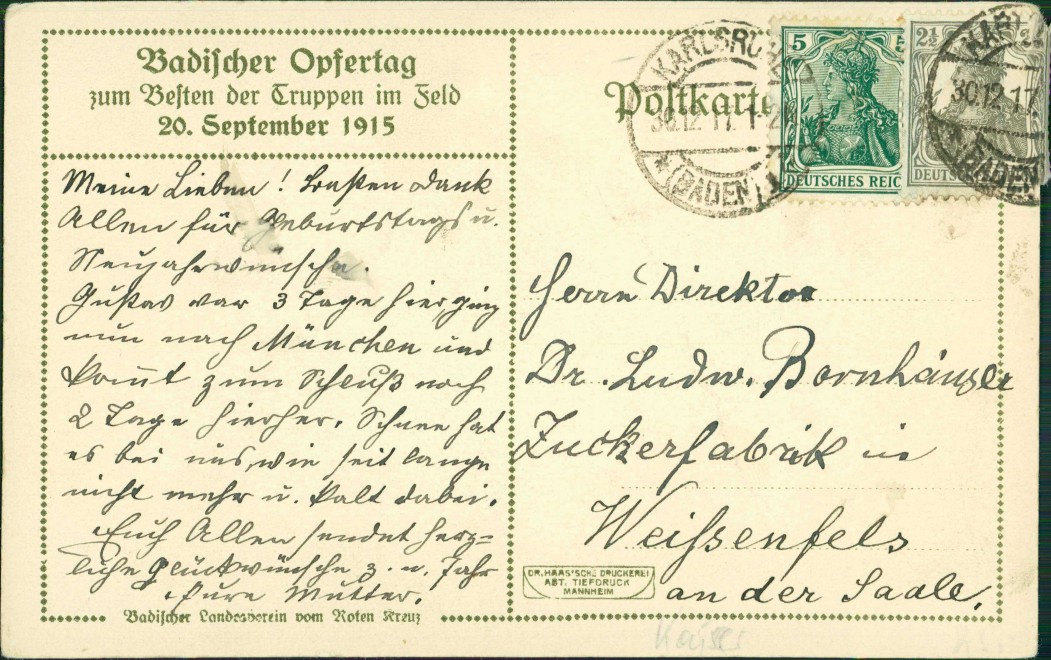 Badischer Opfertag
zum Besten der Truppen im Feld
20. September 1915
Postkarte
KARLSRUHE
30.12.17. 1-2N
* (BADEN) 1
5 5
DEUTSCHES REIC
2½ 2½
DEUTSC
KARL
30.12.17
(BADEN
Meine Lieben! Besten Dank
Allen für Geburtstags u.
Neujahrwünsche.
Gustav war 3 Tage hier, ging
nun nach München und
kommt zum Schluß noch
2 Tage hierher. Schnee hat
es bei uns, wie seit lange
nicht mehr u. kalt dabei.
Euch Allen sendet herz=
liche Glückwünsche z. n. Jahr
Eure Mutter.
Badischer Landesverein vom Roten Kreuz
Herrn Direktor
Dr. Ludw. Bornhäuser
Zuckerfabrik in
Weißenfels
an der Saale.
DR. HAAS'SCHE DRUCKEREI
ABT. TIEFDRUCK
MANNHEIM